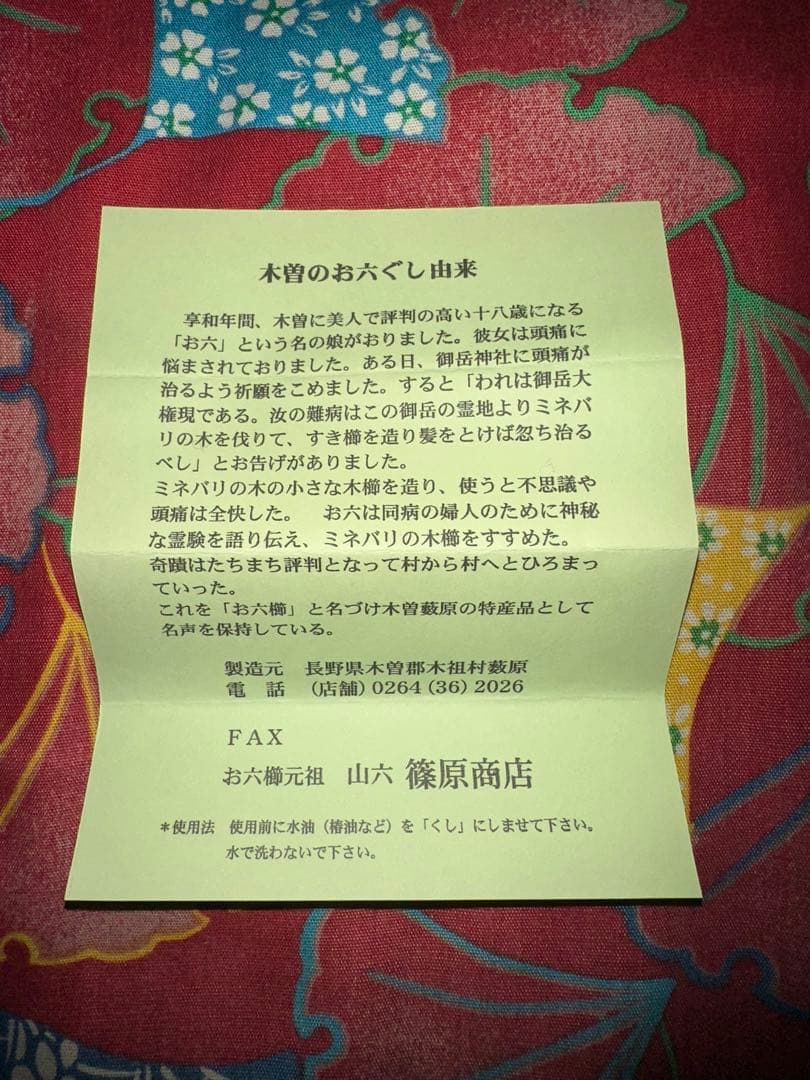 木曽のお六ぐし由来
享和年間、木曽に美人で評判の高い十八歳になる
「お六」という名の娘がおりました。彼女は頭痛に
悩まされておりました。ある日、御岳神社に頭痛が
治るよう祈願をこめました。すると「われは御岳大
権現である。汝の難病はこの御岳の霊地よりミネバ
リの木を伐りて、すき櫛を造り髪をとけば忽ち治る
べし」とお告げがありました。
ミネバリの木の小さな木櫛を造り、使うと不思議や
頭痛は全快した。　お六は同病の婦人のために神秘
な霊験を語り伝え、ミネバリの木櫛をすすめた。
奇蹟はたちまち評判となって村から村へとひろまっ
ていった。
これを「お六櫛」と名づけ木曽薮原の特産品として
名声を保持している。
製造元　長野県木曽郡木祖村薮原
電　話　（店舗）0264（36）2026
ＦＡＸ
お六櫛元祖　山六 篠原商店
＊使用法　使用前に水油（椿油など）を「くし」にしませて下さい。
水で洗わないで下さい。